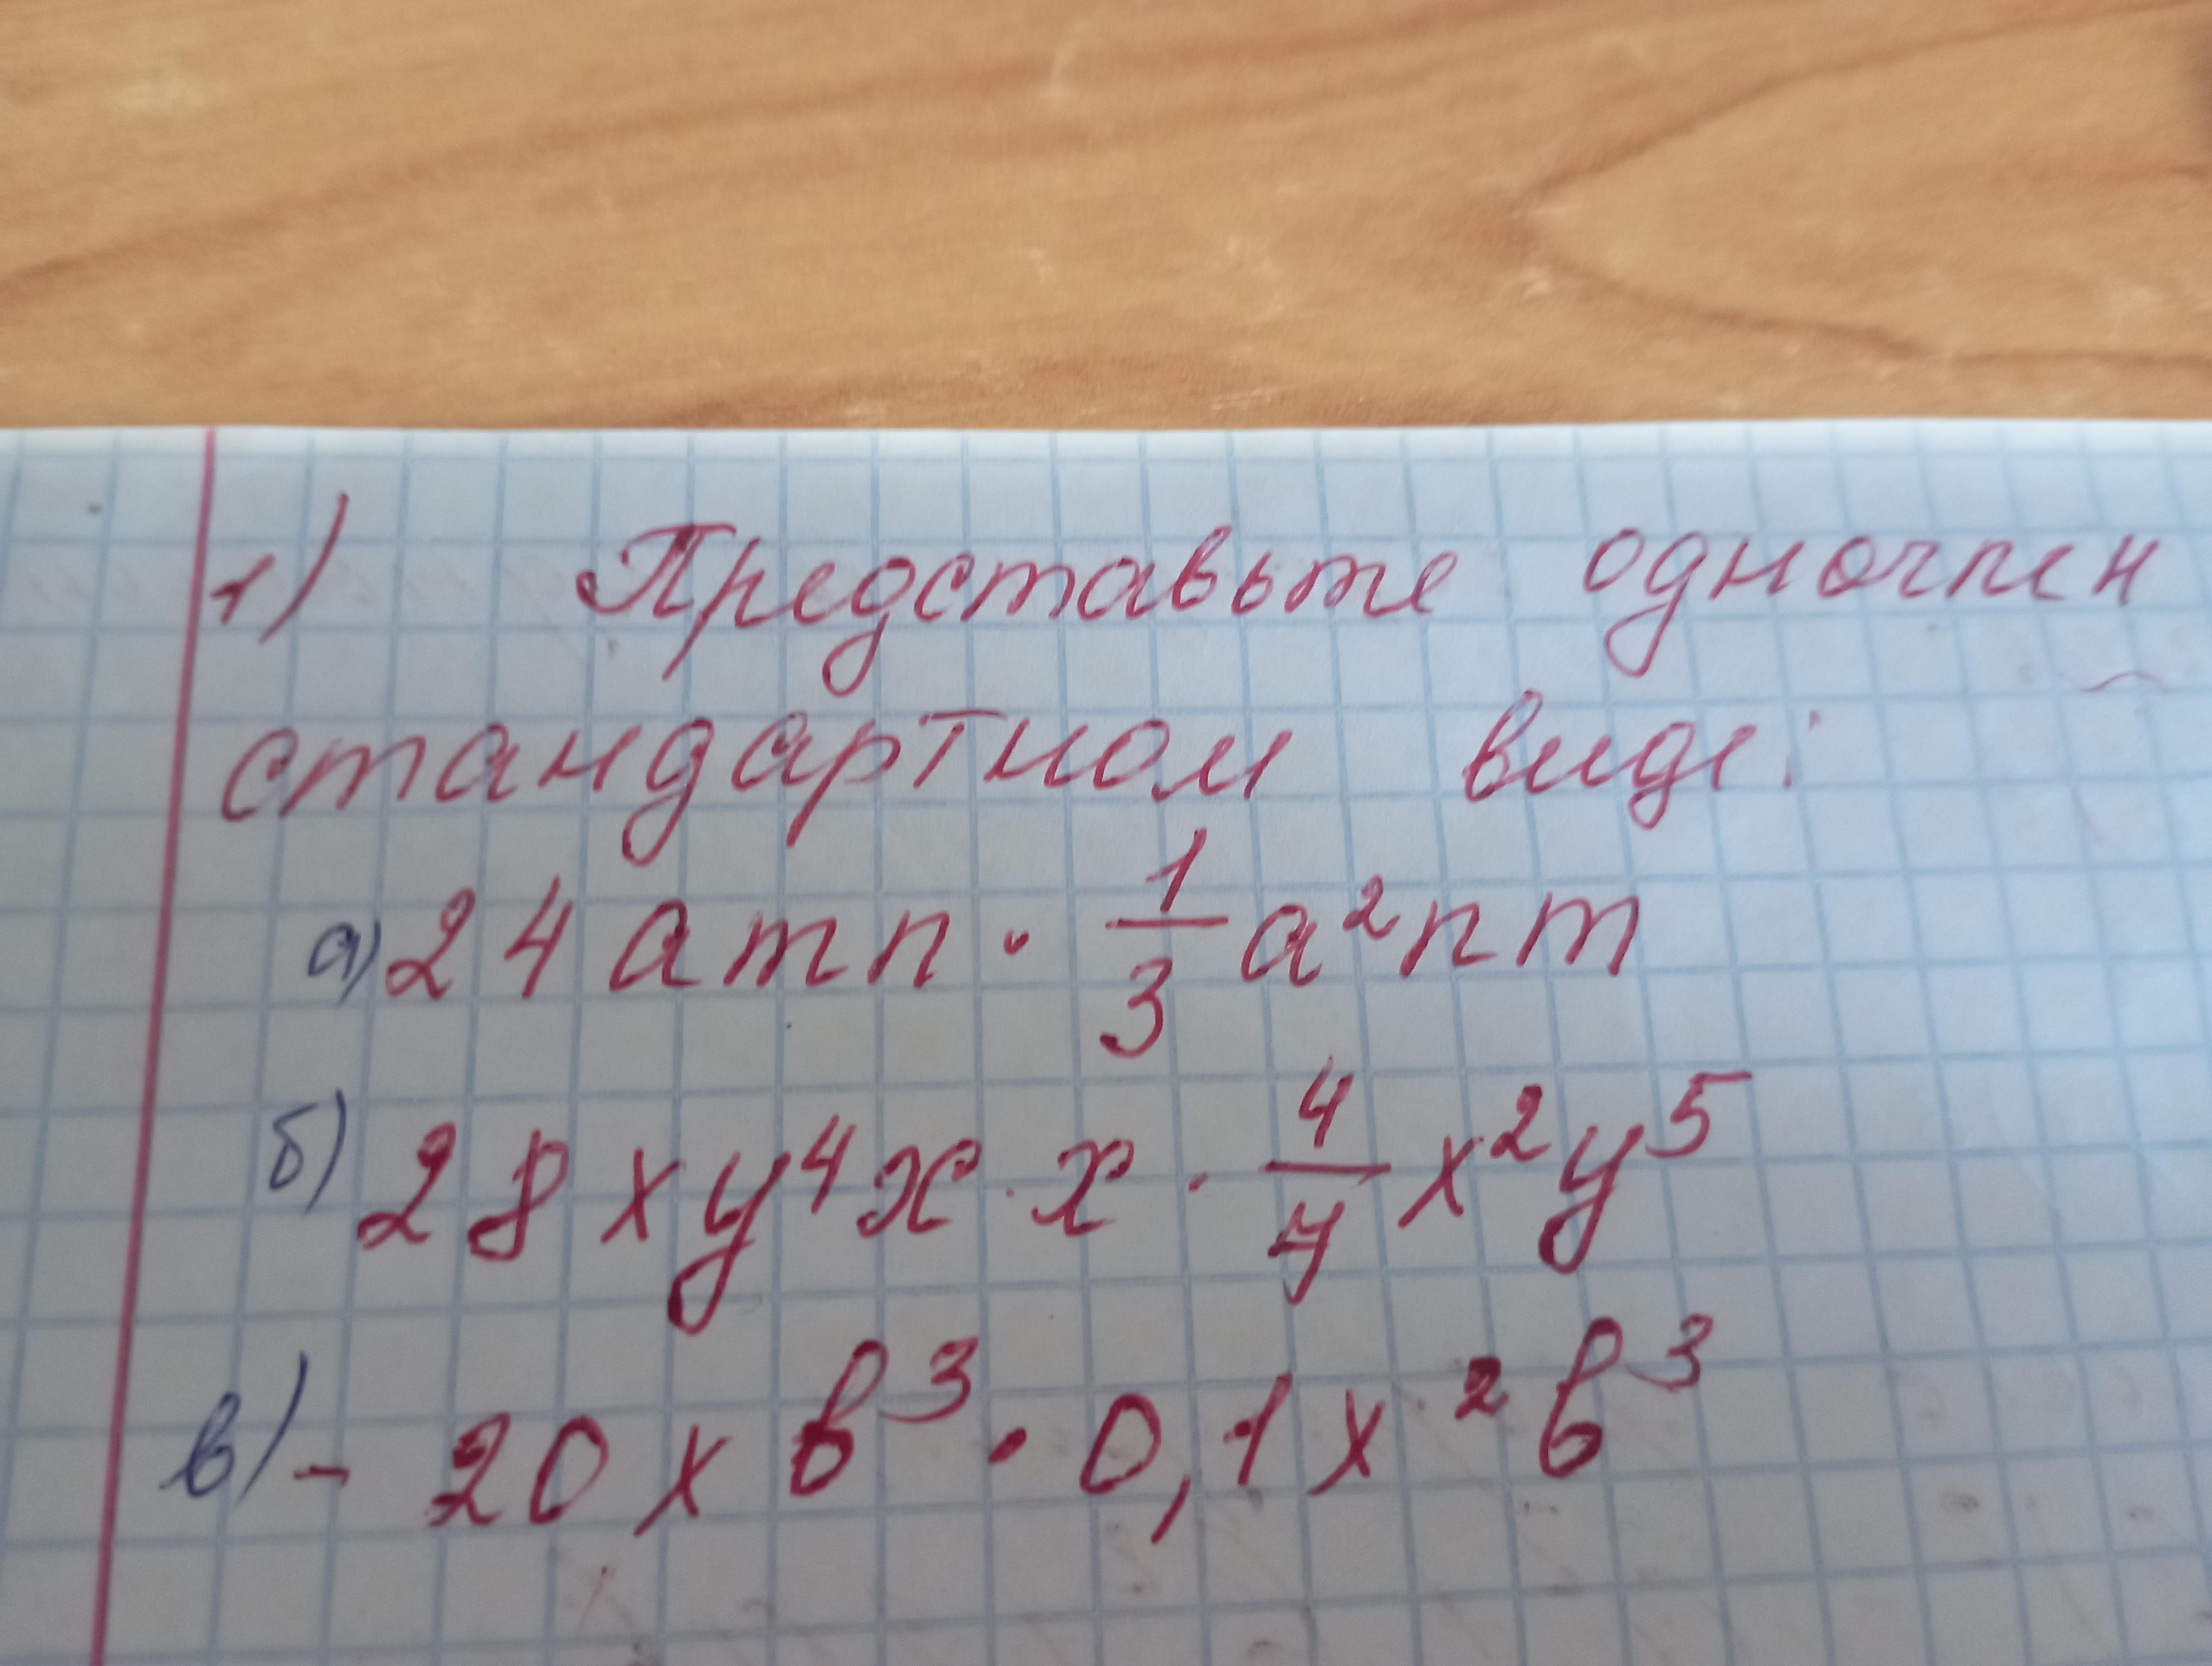 1) Представьте одночлен
стандартном виде:
а) 24 amn · 1/3 a²nm
б) 28xy⁴x · x · 4/7 x²y⁵
в) - 20xb³ · 0,1x²b³